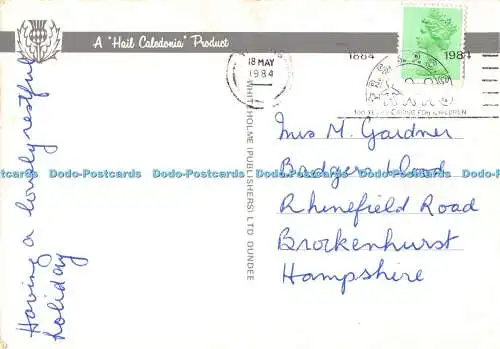 A "Hail Caledonia" Product
18 MAY
1984
1884 1984
100 YEARS CARING FOR CHILDREN
WHITEHOLME (PUBLISHERS) LTD DUNDEE
Having a lovely restful
holiday
Mrs M. Gardner
Badgers Wood
Rhinefield Road
Brockenhurst
Hampshire
Dodo-Postcards Dodo-Postcards Dodo-Postcards Dodo-Postcards Dodo-Postcards